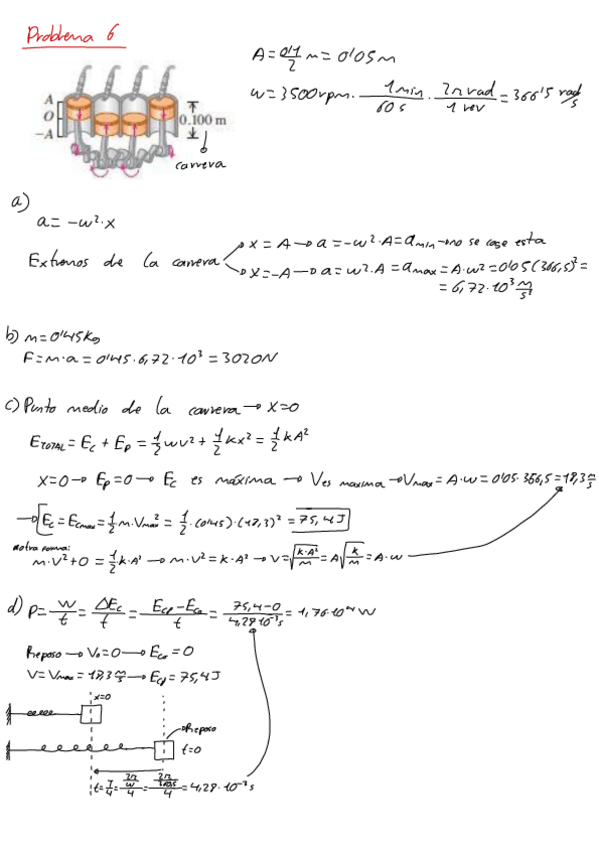 Problema 6
A = 0'1/2 m = 0'05m
w = 3500rpm · 1min/60s · 2π rad/1 rev = 366'5 rad/s
A
O
-A
0.100 m
carrera
a)
a = -w²·x
Extremos de la carrera
x = A → a = -w²·A = amin → no se coge esta
x = -A → a = w²·A = amax = A·w² = 0'05(366,5)² =
= 6,72·10³ m/s²
b) m = 0'45Kg
F = m·a = 0'45·6,72·10³ = 3020N
c) Punto medio de la carrera → x=0
ETOTAL = Ec + Ep = 1/2 mv² + 1/2 kx² = 1/2 kA²
x=0 → Ep=0 → Ec es máxima → V es maxima → Vmax = A·w = 0'05·366,5 = 18,3 m/s
→ Ec = Ecmax = 1/2 m·Vmax² = 1/2·(0'45)·(18,3)² = 75,4J
otra forma:
m·V² + 0 = 1/2 k·A² → m·V² = k·A² → V = √(k·A²/m) = A√(k/m) = A·w
d) P = W/t = ΔEc/t = (Ecf - Eco)/t = (75,4-0)/(4,28·10⁻³s) = 1,76·10⁴ W
Reposo → V₀=0 → Eco = 0
V = Vmax = 18,3 m/s → Ecf = 75,4J
x=0
Reposo
t=0
t = T/4 = (2π/w)/4 = (2π/366,5)/4 = 4,28·10⁻³s